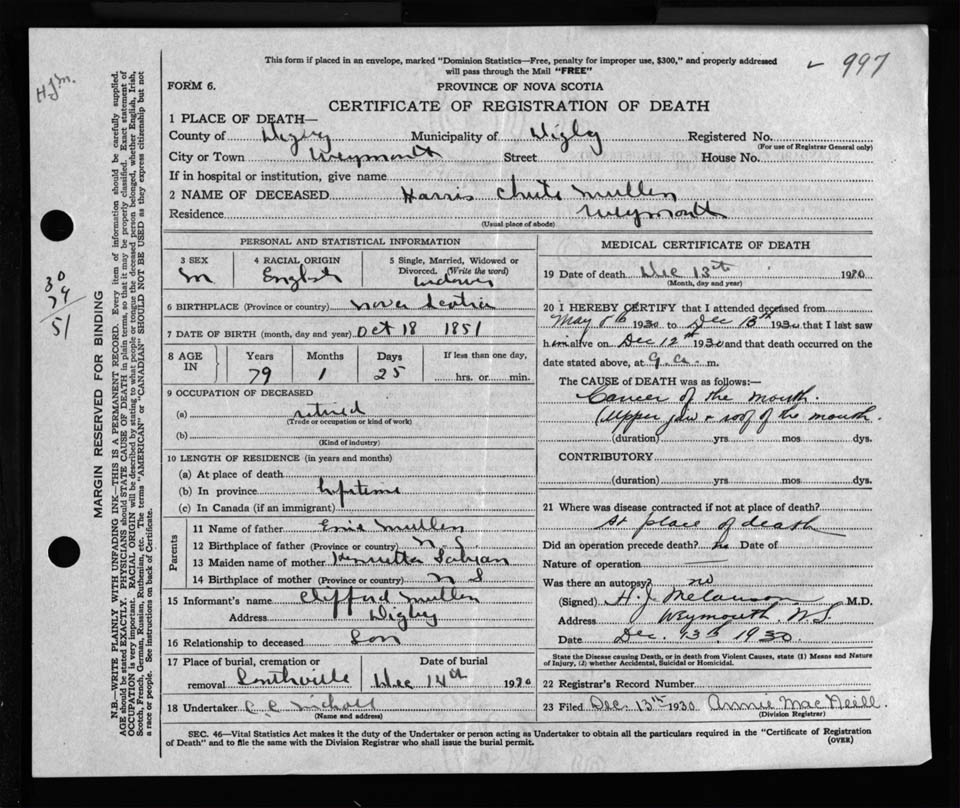 This form if placed in an envelope, marked "Dominion Statistics—Free, penalty for improper use, $300," and properly addressed
will pass through the Mail "FREE"
997
H.J.M.
FORM 6.
PROVINCE OF NOVA SCOTIA
CERTIFICATE OF REGISTRATION OF DEATH
1 PLACE OF DEATH—
County of Digby Municipality of Digby Registered No.
(For use of Registrar General only)
City or Town Weymouth Street House No.
If in hospital or institution, give name
2 NAME OF DECEASED Harris Chute Mullen
Residence Weymouth
(Usual place of abode)
PERSONAL AND STATISTICAL INFORMATION
3 SEX 4 RACIAL ORIGIN 5 Single, Married, Widowed or
Divorced. (Write the word)
M English Widower
6 BIRTHPLACE (Province or country) Nova Scotia
7 DATE OF BIRTH (month, day and year) Oct 18 1851
8 AGE IN Years Months Days If less than one day,
79 1 25 hrs. or min.
9 OCCUPATION OF DECEASED
(a) retired
(Trade or occupation or kind of work)
(b)
(Kind of industry)
10 LENGTH OF RESIDENCE (in years and months)
(a) At place of death
(b) In province lifetime
(c) In Canada (if an immigrant)
Parents
11 Name of father Mullen
12 Birthplace of father (Province or country) N S
13 Maiden name of mother Henrietta
14 Birthplace of mother (Province or country) N S
15 Informant's name Clifford Mullen
Address Digby
16 Relationship to deceased Son
17 Place of burial, cremation or Date of burial
removal Southville Dec 14th 1930
18 Undertaker C. C. Nicholl
(Name and address)
MEDICAL CERTIFICATE OF DEATH
19 Date of death Dec 13th 1930
(Month, day and year)
20 I HEREBY CERTIFY that I attended deceased from
May 1930 to Dec 13th 1930 that I last saw
him alive on Dec 12th 1930 and that death occurred on the
date stated above, at 9 a. m.
The CAUSE OF DEATH was as follows:—
Cancer of the mouth.
(Upper jaw & roof of the mouth.
(duration) yrs mos dys.
CONTRIBUTORY
(duration) yrs mos dys.
21 Where was disease contracted if not at place of death?
At place of death
Did an operation precede death? no Date of
Nature of operation
Was there an autopsy? no
(Signed) H. J. Melanson M.D.
Address Weymouth, N.S.
Date Dec. 13th 1930
State the Disease causing Death, or in death from Violent Causes, state (1) Means and Nature
of Injury, (2) whether Accidental, Suicidal or Homicidal.
22 Registrar's Record Number
23 Filed Dec. 13th 1930 Annie MacNeill.
(Division Registrar)
SEC. 46—Vital Statistics Act makes it the duty of the Undertaker or person acting as Undertaker to obtain all the particulars required in the "Certificate of Registration
of Death" and to file same with the Division Registrar who shall issue the burial permit.
(OVER)
MARGIN RESERVED FOR BINDING
N.B.—WRITE PLAINLY WITH UNFADING INK—THIS IS A PERMANENT RECORD. Every item of information should be carefully supplied.
AGE should be stated EXACTLY. PHYSICIANS should STATE CAUSE OF DEATH in plain terms, so that it may be properly classified. Exact statement of
OCCUPATION is very important. RACIAL ORIGIN will be described by stating to what people or tongue the deceased person belonged, whether English, Irish,
Scotch, French, German, Russian, Ruthenian, etc. The terms "AMERICAN" or "CANADIAN" SHOULD NOT BE USED as they express citizenship but not
a race or people. See instructions on back of Certificate.
30
79
51